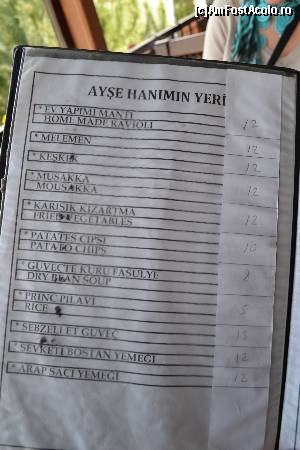 (c) AmFostAcolo.ro
AYŞE HANIMIN YERİ
* EV YAPIMI MANTI
HOME MADE RAVIOLI 12
* MELEMEN 12
* KEŞKEK 12
* MUSAKKA
MOUSAKKA 12
* KARIŞIK KIZARTMA
FRIED VEGETABLES 12
* PATATES CİPSİ
PATATO CHIPS 10
* GUVEÇTE KURU FASULYE
DRY BEAN SOUP 8
* PRİNÇ PİLAVİ
RICE 5
* SEBZELİ ET GUVEÇ 15
* ŞEVKETİ BOSTAN YEMEĞİ 12
* ARAP SAÇI YEMEĞİ 12